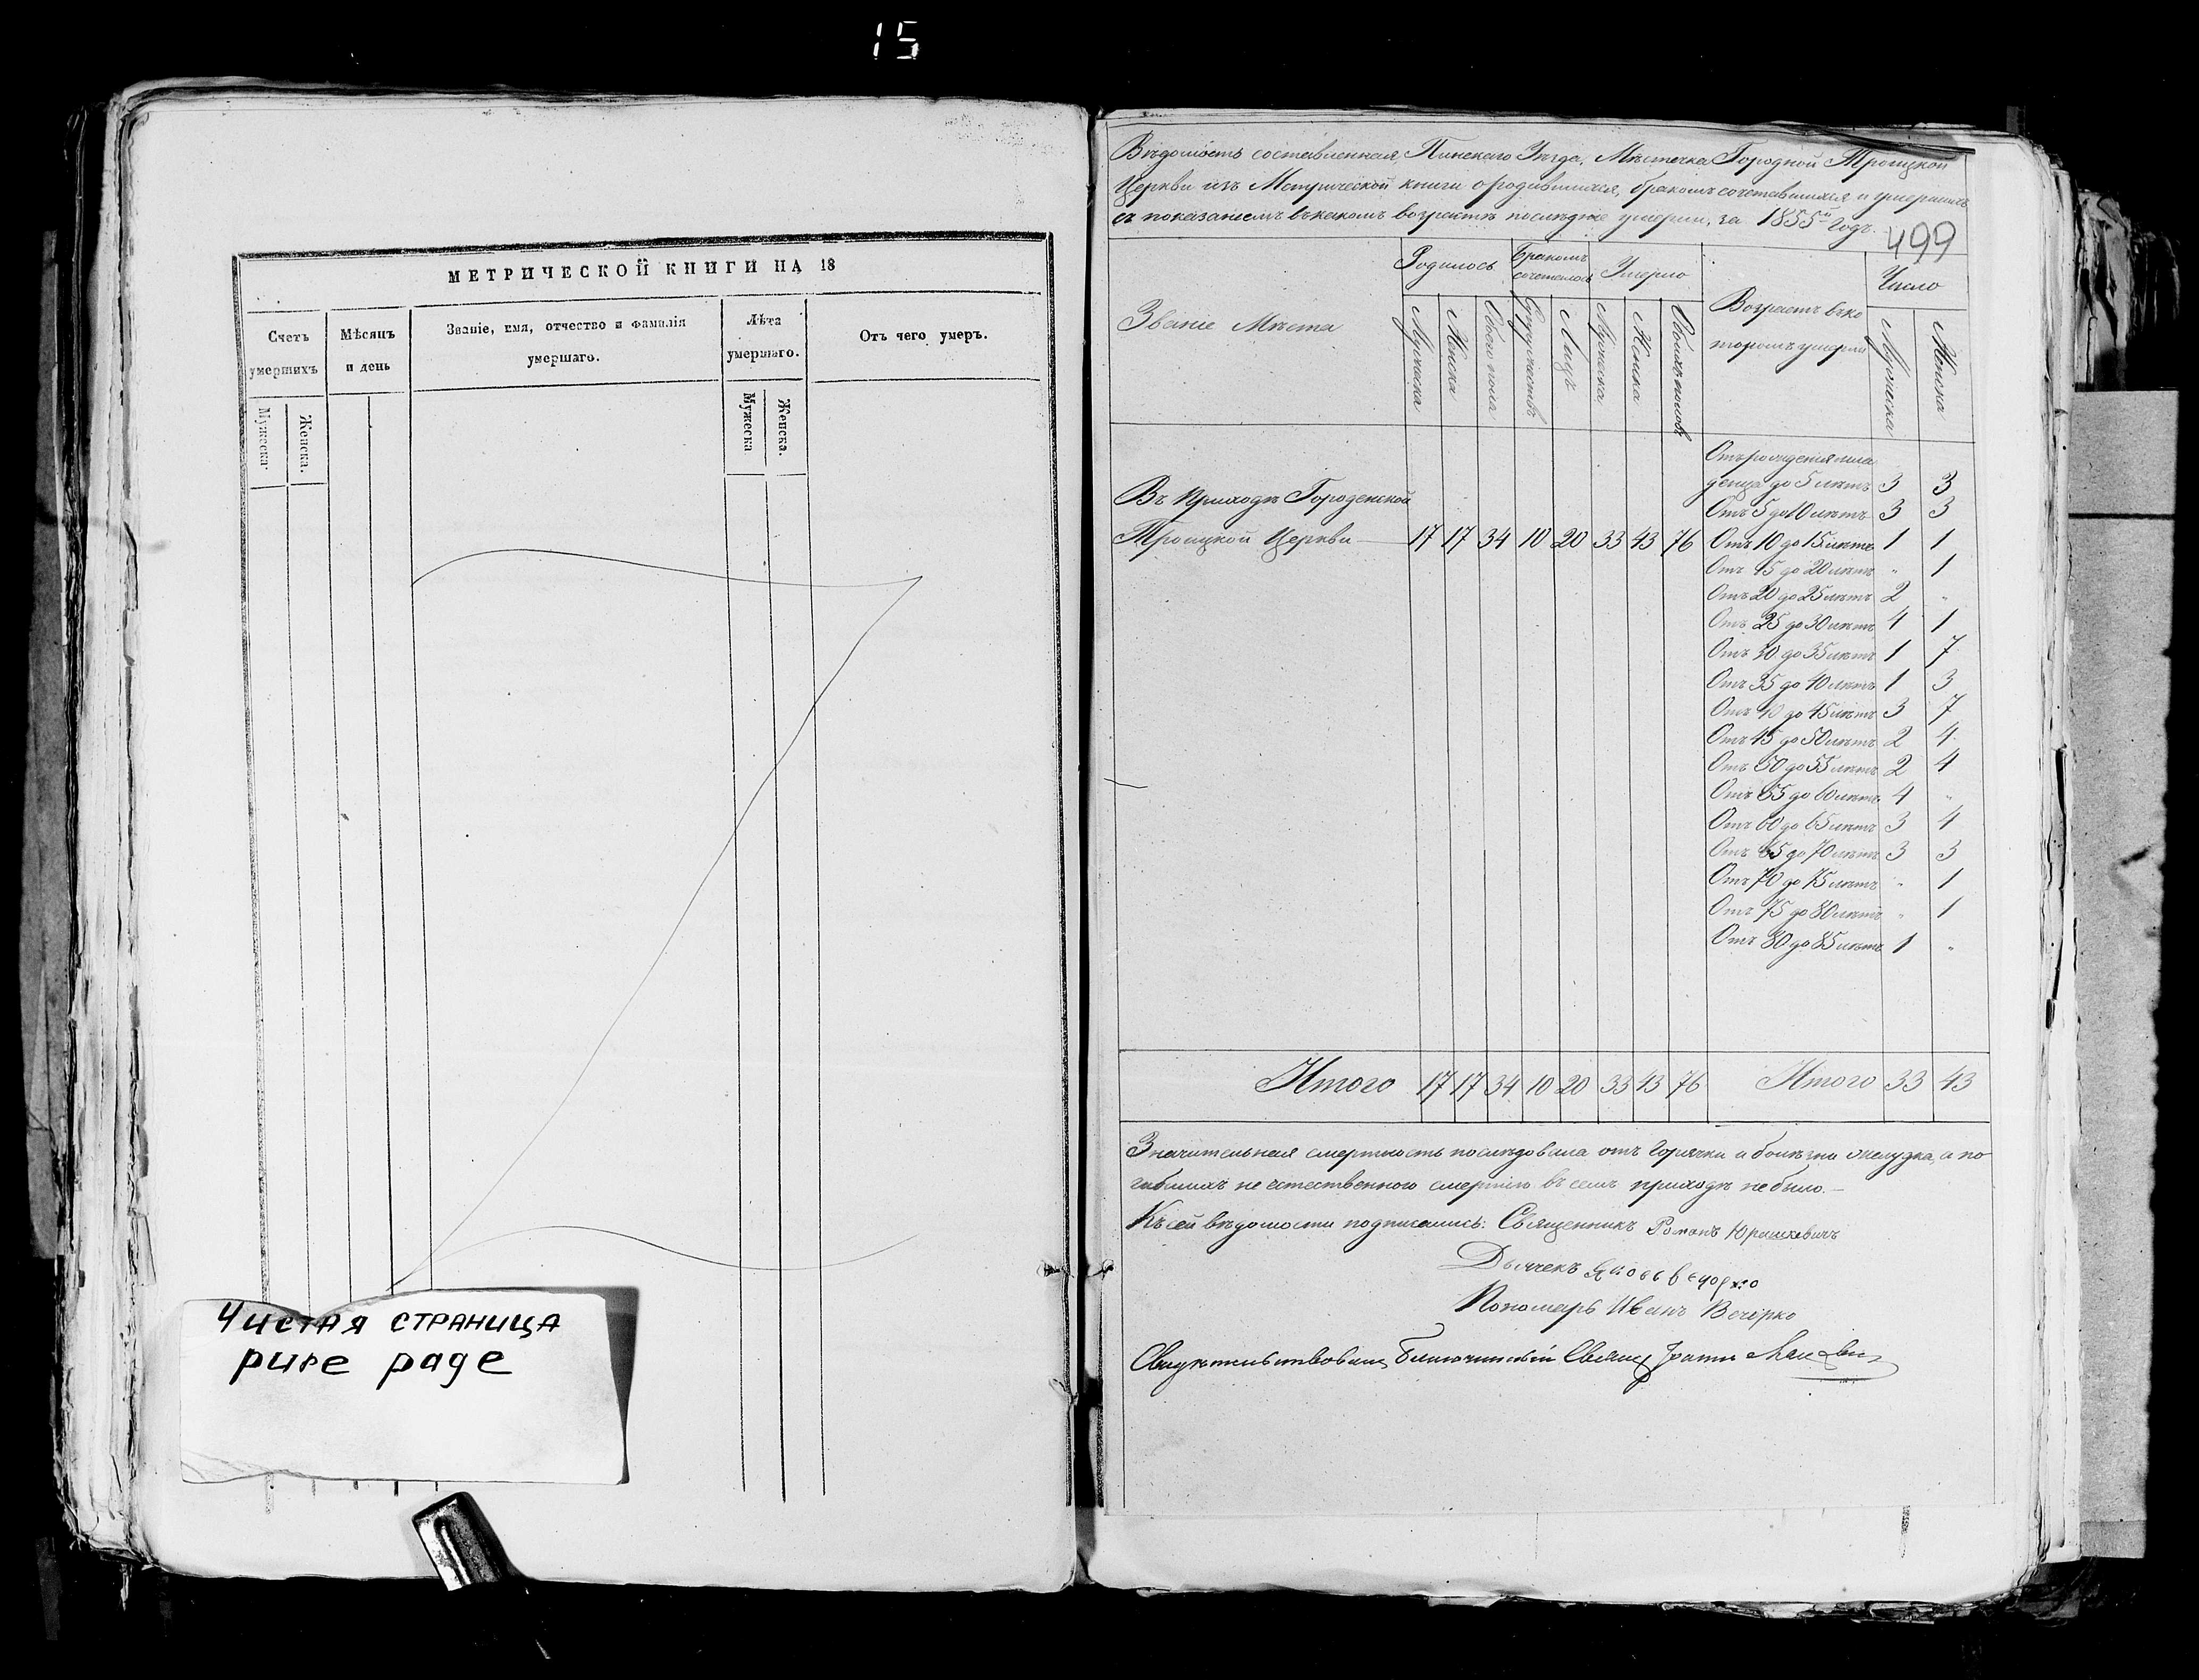 15
МЕТРИЧЕСКОЙ КНИГИ НА 18
Счетъ умершихъ
Мужеска.
Женска.
Мѣсяцъ и день
Званіе, имя, отчество и фамилія умершаго.
Лѣта умершаго.
Мужеска
Женска.
Отъ чего умеръ.
Чистая страница
pure page
Вѣдомость составленная, Пинскаго Уѣзда, Мѣстечка Городной Троицкой
Церкви изъ Метрической книги о родившихся, бракомъ сочетавшихся и умершихъ
съ показаніемъ въ какомъ возрастѣ послѣдніе умерли, за 1855й Годъ.
499
Званіе Мѣста
Родилось
Мужеска
Женска
Обоего пола
Бракомъ сочеталось
Супружествъ
Лицъ
Умерло
Мужеска
Женска
Обоихъ половъ
Возрастъ въ ко
торомъ умерли
Число
Мужеска
Женска
Отъ рожденія мла
денца до 5 лѣтъ 3 3
Отъ 5 до 10 лѣтъ 3 3
Въ Приходѣ Городенской
Троицкой Церкви 17 17 34 10 20 33 43 76 Отъ 10 до 15 лѣтъ 1 1
Отъ 15 до 20 лѣтъ " 1
Отъ 20 до 25 лѣтъ 2 "
Отъ 25 до 30 лѣтъ 4 1
Отъ 30 до 35 лѣтъ 1 7
Отъ 35 до 40 лѣтъ 1 3
Отъ 40 до 45 лѣтъ 3 7
Отъ 45 до 50 лѣтъ 2 4
Отъ 50 до 55 лѣтъ 2 4
Отъ 55 до 60 лѣтъ 4 "
Отъ 60 до 65 лѣтъ 3 4
Отъ 65 до 70 лѣтъ 3 3
Отъ 70 до 75 лѣтъ " 1
Отъ 75 до 80 лѣтъ " 1
Отъ 80 до 85 лѣтъ 1 "
Итого 17 17 34 10 20 33 43 76 Итого 33 43
Значительная смертность послѣдовала отъ горячки и болѣзни желудка, а по
гибшихъ не естественного смертію въ семъ приходѣ не было.—
Къ сей вѣдомости подписались: Священникъ Романъ Юрашкевичъ
Дьячекъ Яковъ
Пономарь Иванъ Вечерко
Свидѣтельствовалъ Благочинный Священ